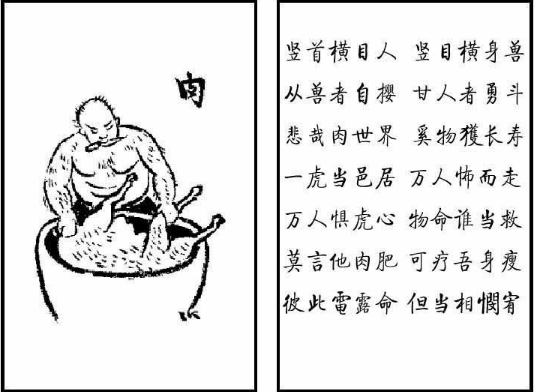 肉
竖首横目人 竖目横身兽
从兽者自撄 甘人者勇斗
悲哉肉世界 奚物獲长寿
一虎当邑居 万人怖而走
万人惧虎心 物命谁当救
莫言他肉肥 可疗吾身瘦
彼此電露命 但当相憫宥